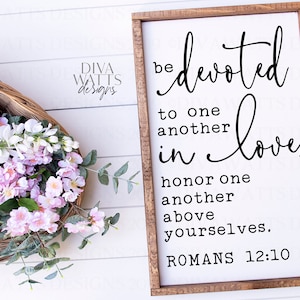 DIVA
WATTS
designs
be devoted
to one
another
in love
honor one
another
above
yourselves.
ROMANS 12:10